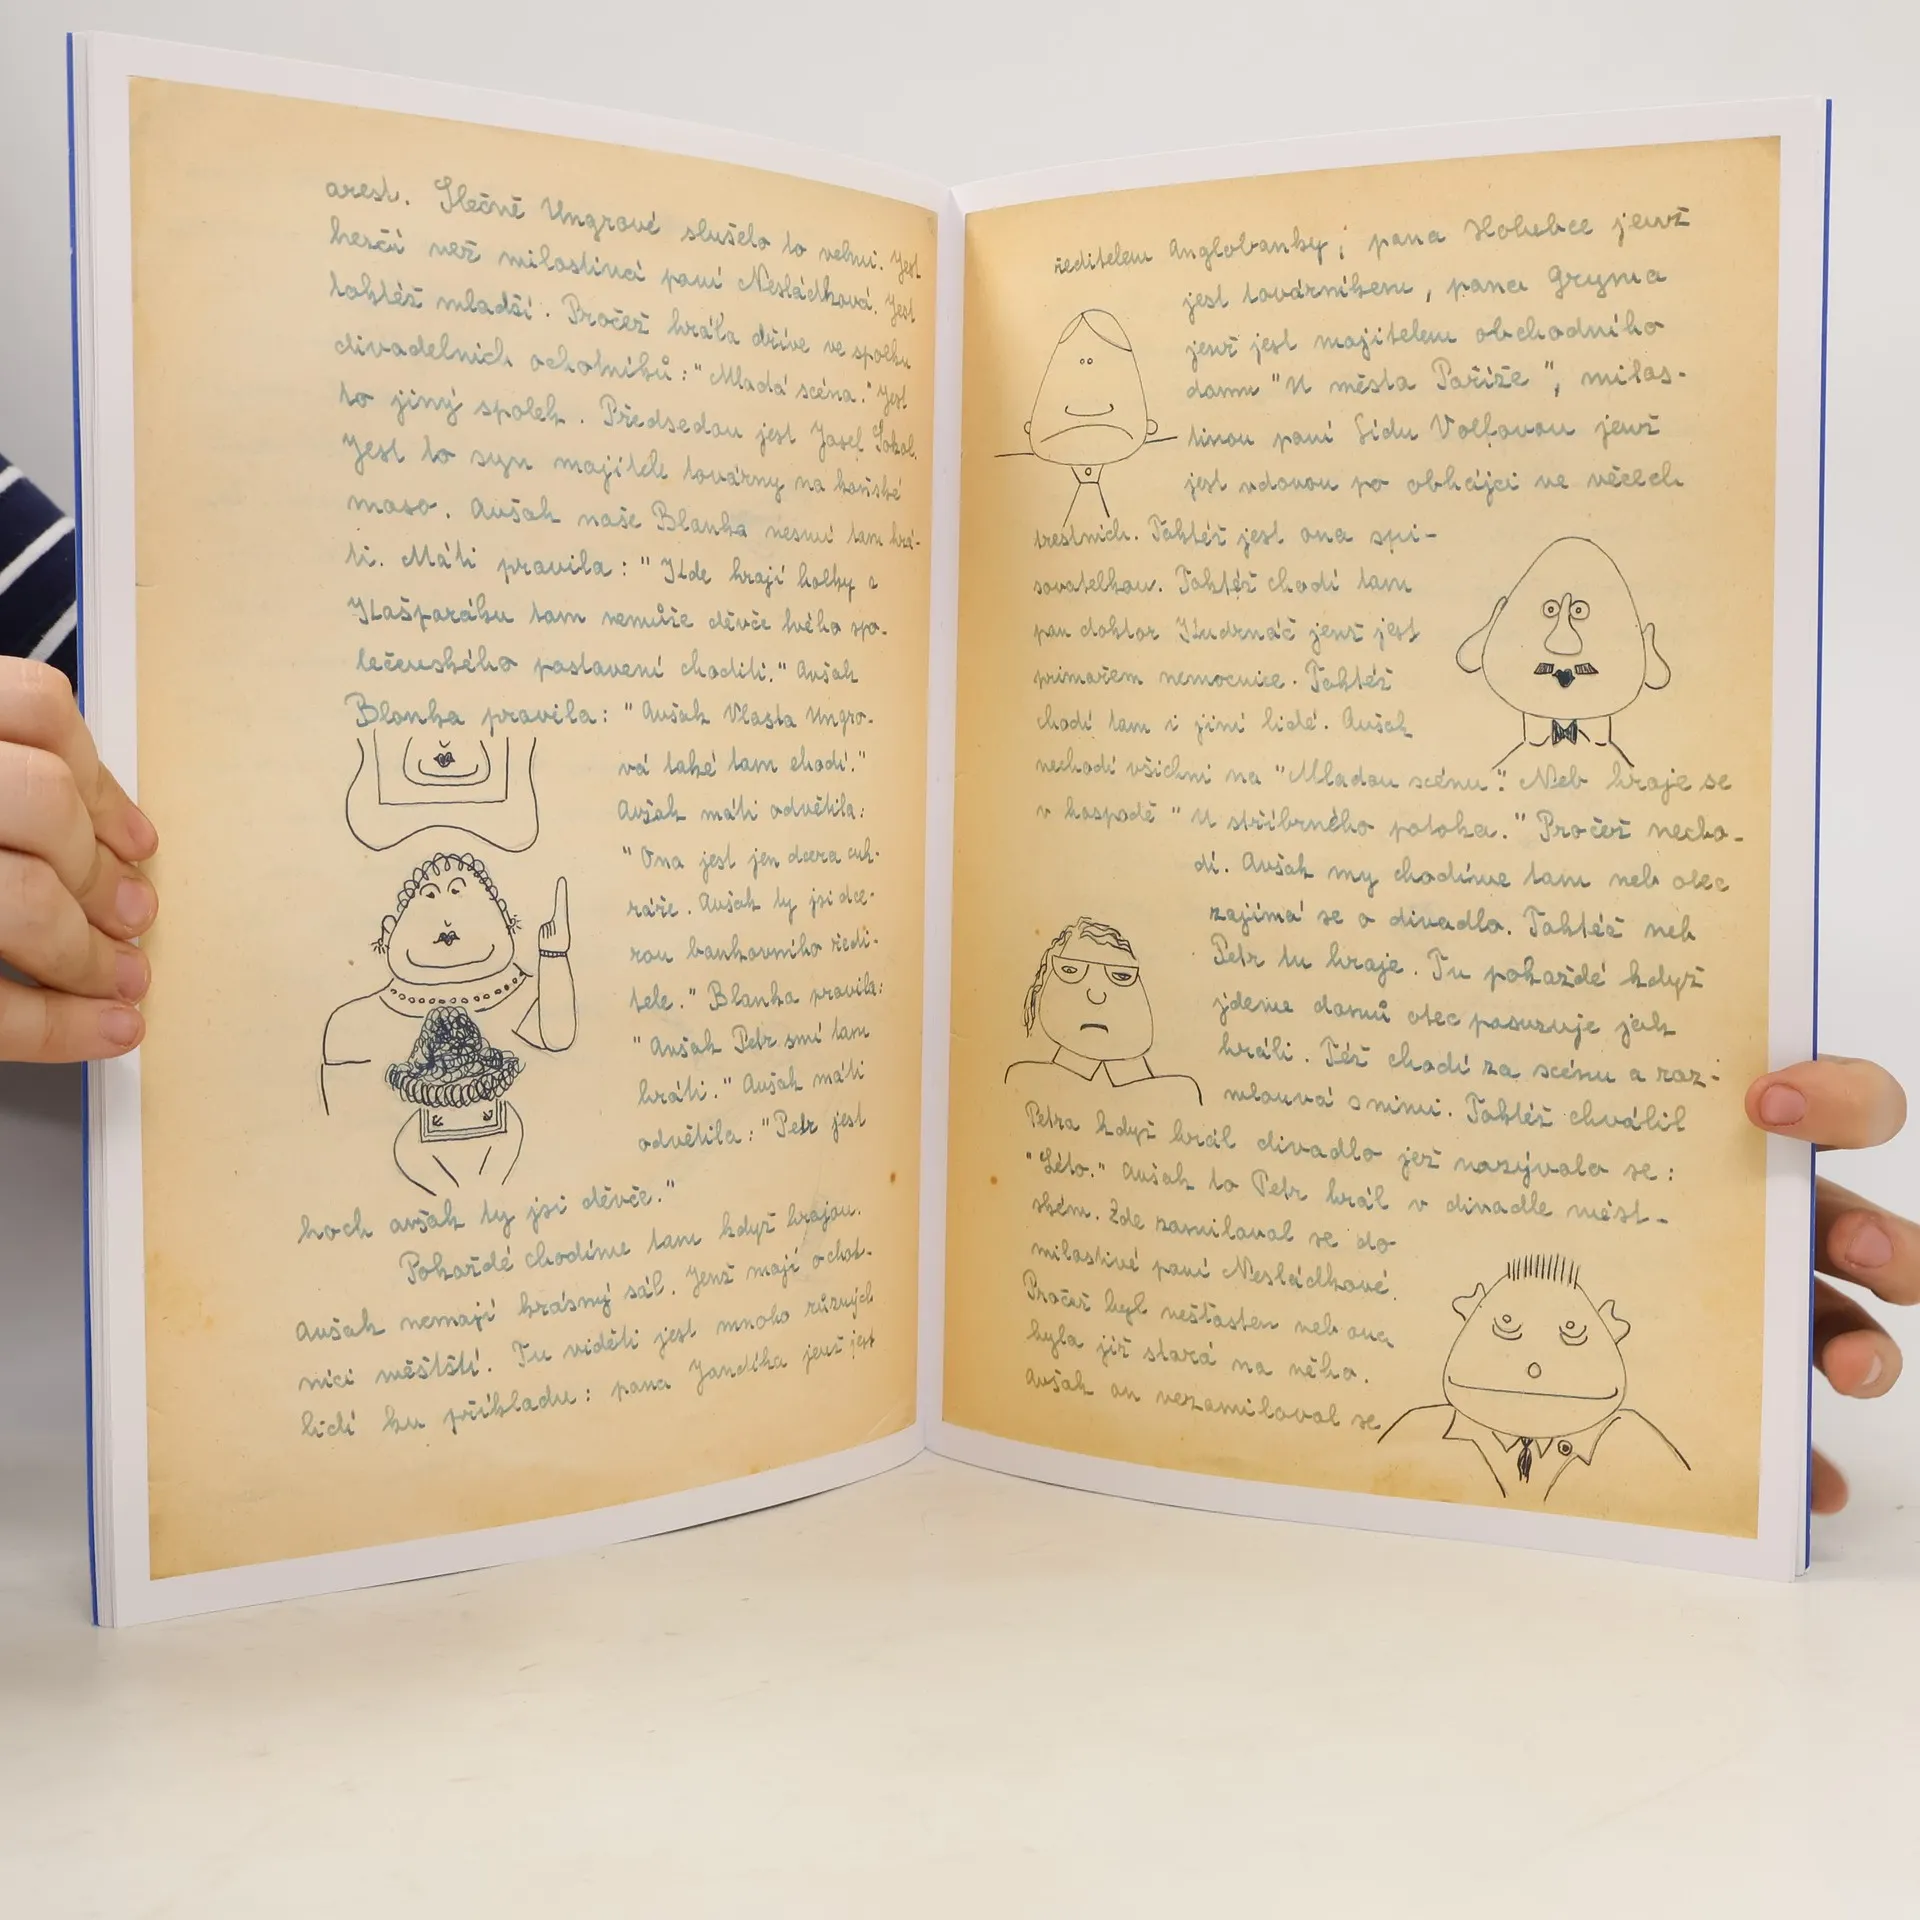 arest. Slečně Ungrové slušelo to velmi. Jest
hezčí než milostivá paní Nesládková. Jest
toktéž mladší. Pročež hrála dříve ve spolku
divadelních ochotníků: "Mladá scéna." Jest
to jiný spolek. Předsedou jest Josef Sokol.
Jest to syn majitele továrny na koňské
maso. Avšak naše Blanka nesmí tam hrá-
ti. Máti pravila: "Kde hrají holky z
Kašparáku tam nemůže děvče tvého spo-
lečenského postavení choditi." Avšak
Blanka pravila: "Avšak Vlasta Ungro-
vá také tam chodí."
Avšak máti odvětila:
"Ona jest jen dcera cuk-
ráře. Avšak ty jsi dce-
rou bankovního ředi-
tele." Blanka pravila:
"Avšak Petr smí tam
hráti." Avšak máti
odvětila: "Petr jest
hoch avšak ty jsi děvče."
Pokaždé chodíme tam když hrajou.
Avšak nemají krásný sál. Jenž mají ochot-
níci městští. Tu viděti jest mnoho různých
lidí ku příkladu: pana Jandíka jenž jest
ředitelem Anglobanky; pana Holubce jenž
jest továrníkem, pana Gryma
jenž jest majitelem obchodního
domu "U města Paříže", milos-
tivou paní Lídu Volfovou jenž
jest vdovou po obhájci ve věcech
trestních. Toktéž jest ona spi-
sovatelkou. Toktéž chodí tam
pan doktor Kudrnáč jenž jest
primářem nemocnice. Toktéž
chodí tam i jiní lidé. Avšak
nechodí všichni na "Mladou scénu." Neb hraje se
v hospodě "U stříbrného potoka." Pročež necho-
dí. Avšak my chodíme tam neb otec
zajímá se o divadlo. Toktéž neb
Petr tu hraje. Tu pokaždé když
jdeme domů otec posuzuje jak
hráli. Též chodí za scénu a roz-
mlouvá s nimi. Toktéž chválil
Petra když hrál divadlo jež nazývalo se:
"Léto." Avšak to Petr hrál v divadle měst-
ském. Zde zamiloval se do
milostivé paní Nesládkové.
Pročež byl nešťasten neb ona
byla již stará na něho.
Avšak on nezamiloval se